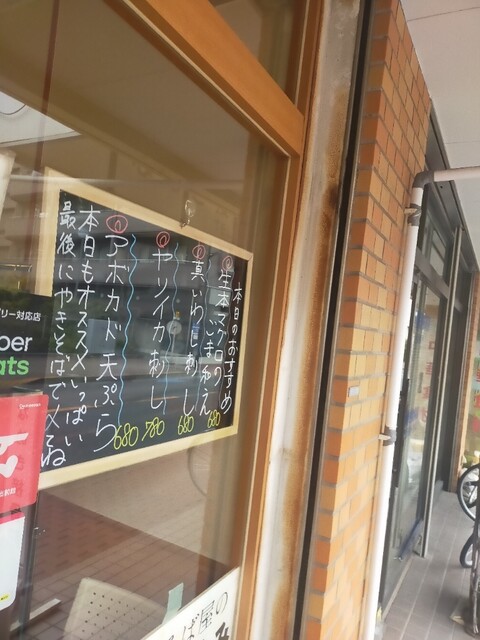 本日のおすすめ
生本マグロの
ごま和え
680
真いわし刺し
680
ヤリイカ刺し
780
アボカド天ぷら
680
本日もオススメいっぱい
最後にやきそばで〆てね
リー対応店
ber
ats
ば屋の